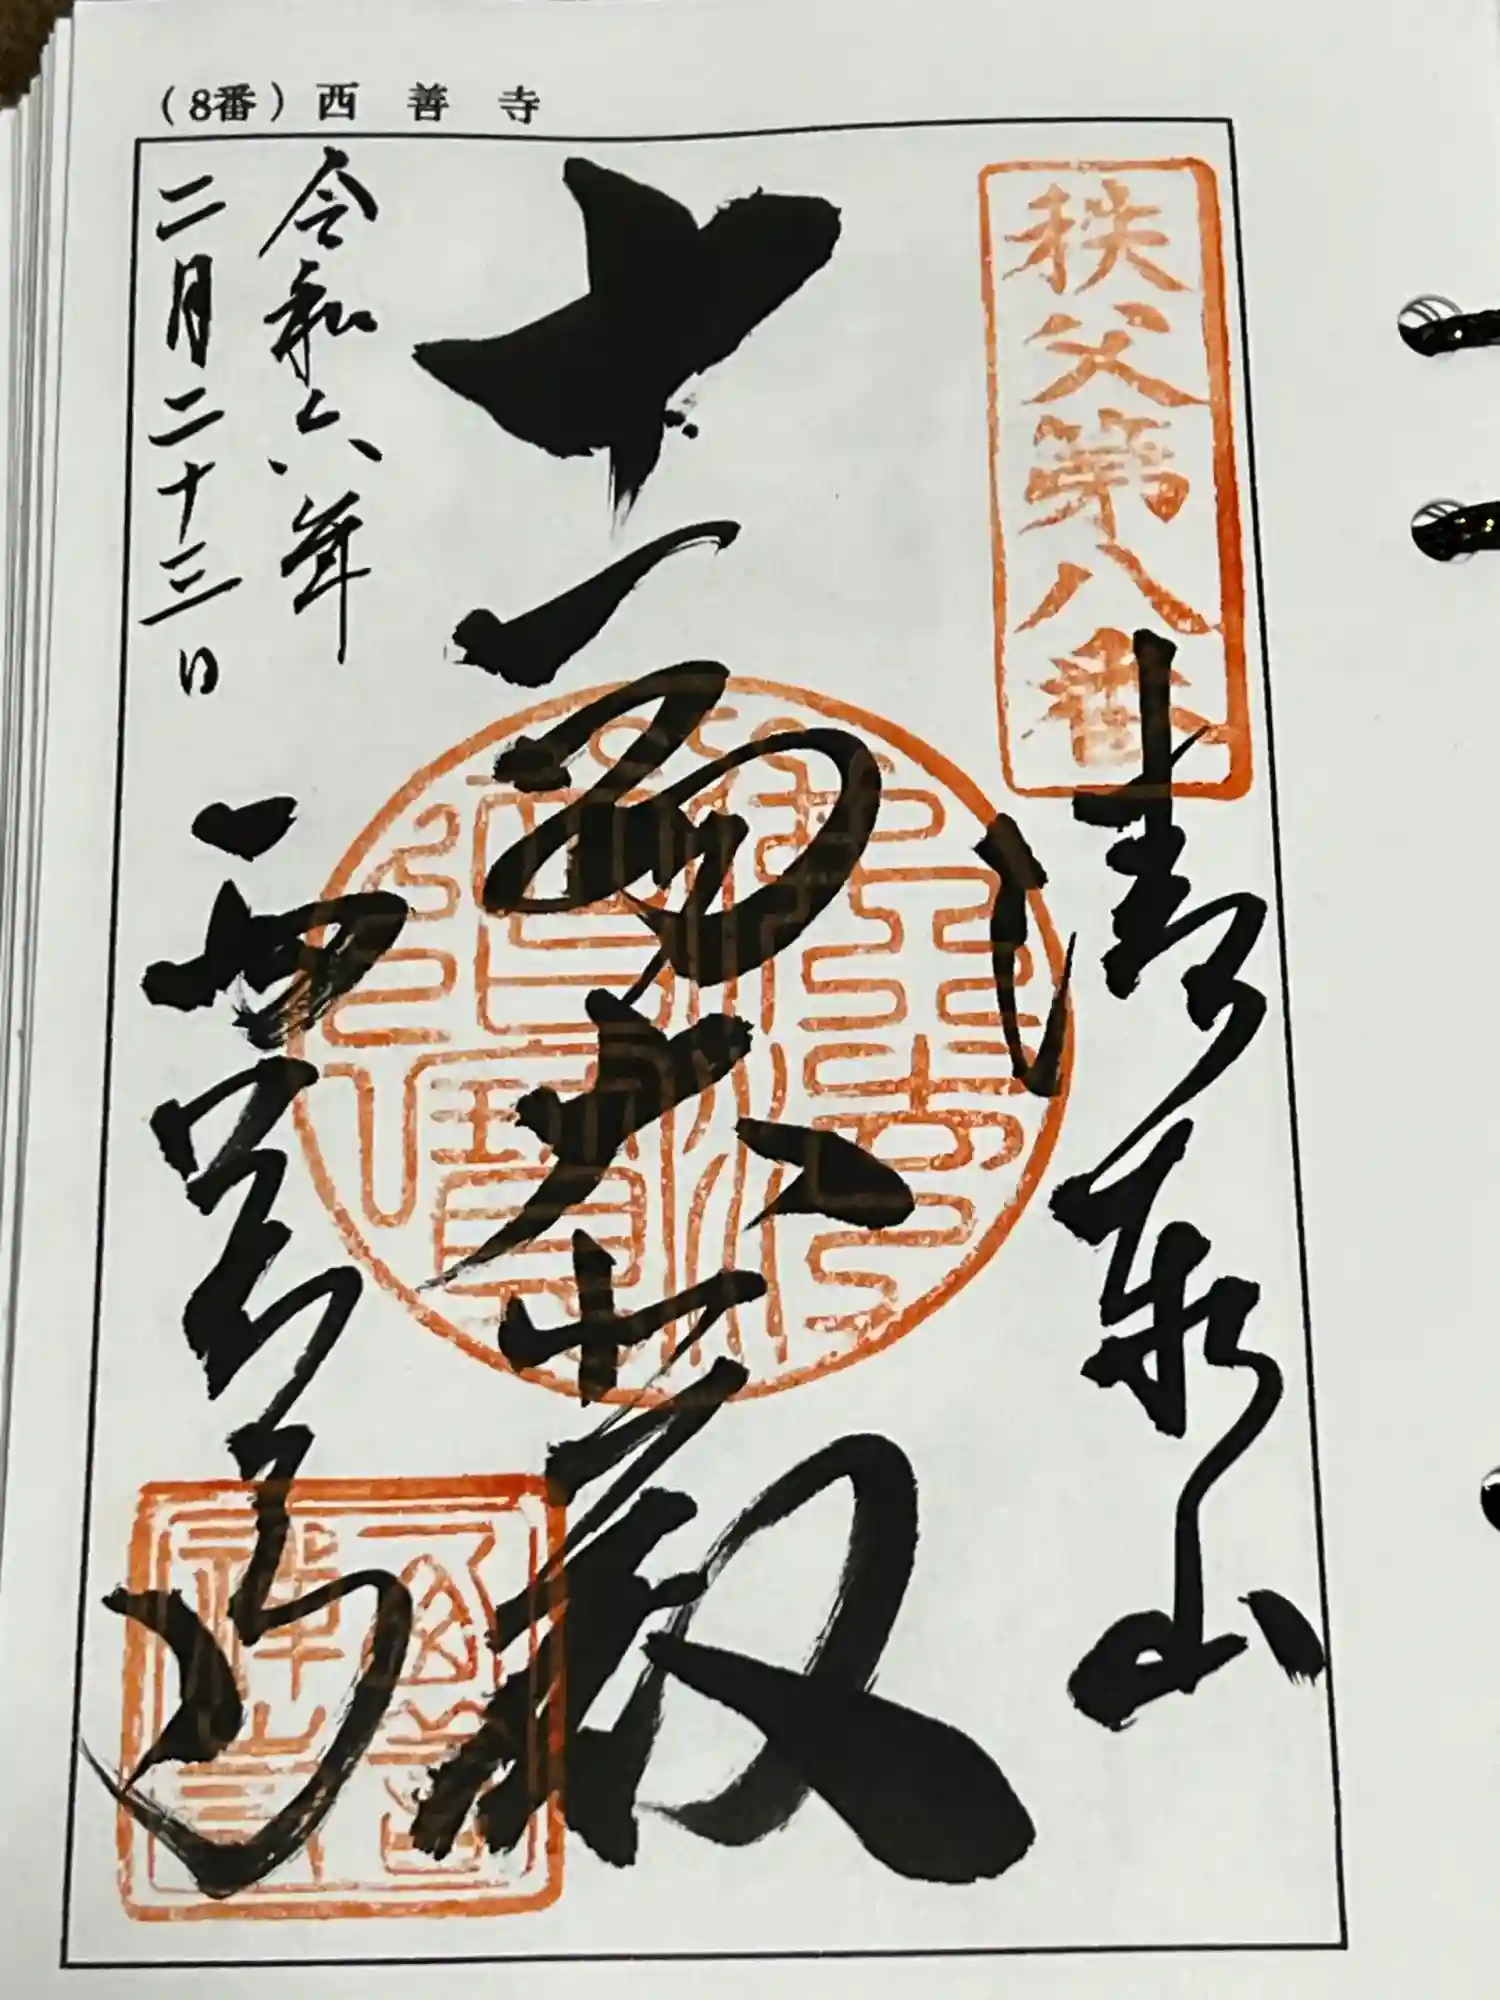 (8番) 西善寺
秩父第八番
清泉山
十一面大士殿
令和六年
二月二十三日
西善寺